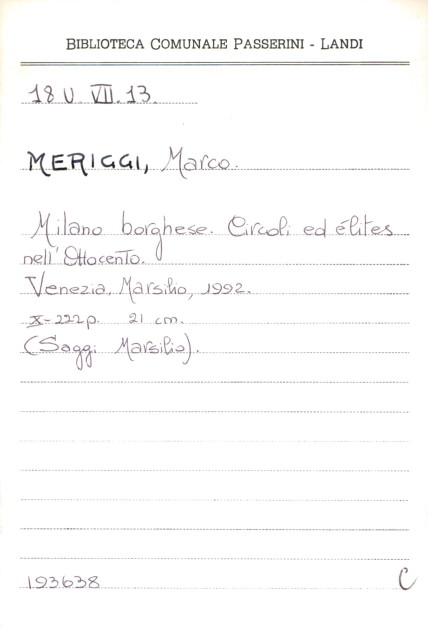 BIBLIOTECA COMUNALE PASSERINI - LANDI
18 U. VII. 13.
MERIGGI, Marco.
Milano borghese. Circoli ed élites
nell'Ottocento.
Venezia, Marsilio, 1992.
X-222p. 21 cm.
(Saggi Marsilio).
193638 C